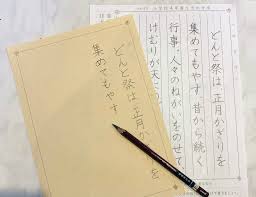 どんど祭は正月かざりを
集めてもやす昔から続く
行事。人々のねがいをのせて
けむりが天に
どんど祭は 正月か を
集めてもやす